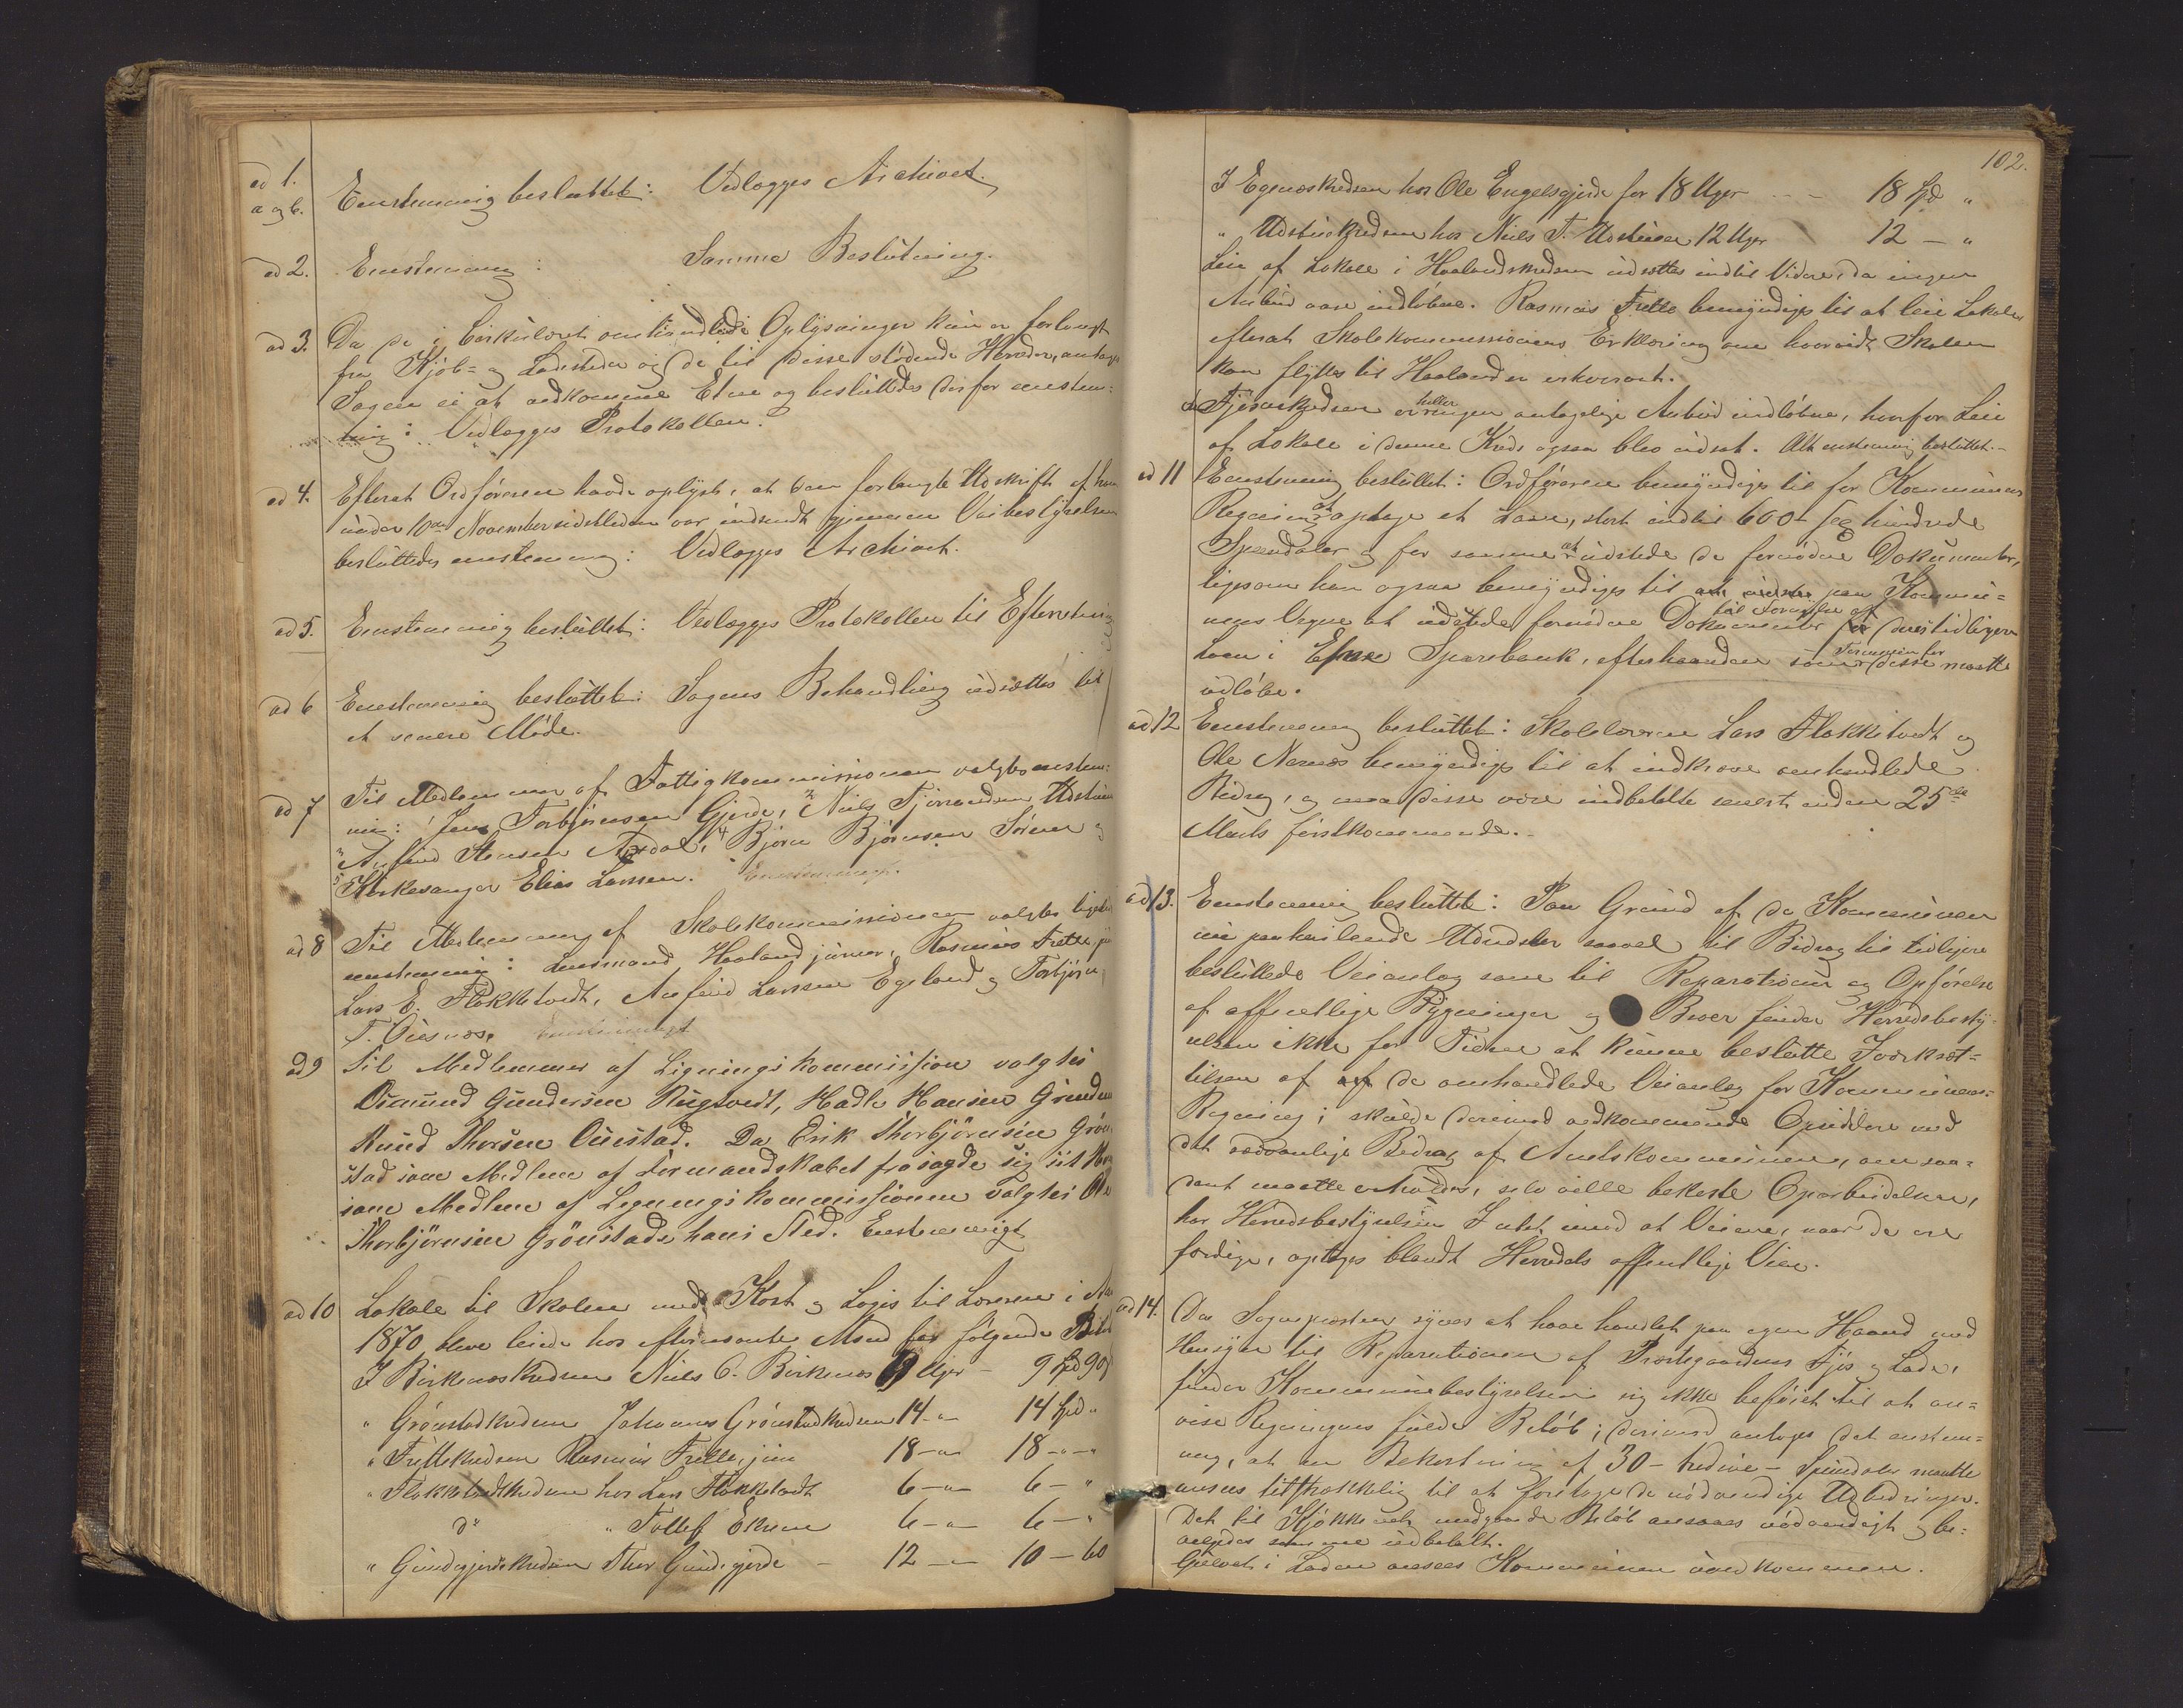 ad 1.
a og b. Eenstemmig besluttet: Vedlægges Archivet.
ad 2. Eenstemmig: Samme Beslutning.
ad 3. Da de i Cirkulæret omhandlede Oplysninger kun er forlangt
fra Kjøb- og Ladesteder og de til disse stødende Hereder, antages
Sagen ei at vedkomme Etne og besluttedes derfor eenstem-
mig: Vedlægges Protokollen.
ad 4. Efterat Ordføreren havde oplyst, at den forlangte Udskrift af ham
under 10de November sidstleden var indsendt gjennem Veibestyrelsen
besluttedes eenstemmig: Vedlægges Archivet.
ad 5. Eenstemmig besluttet: Vedlægges Protokollen til Efterretning
ad 6 Eenstemmig besluttet: Sagens Behandling udsættes til
et senere Møde.
ad 7 Til Medlemmer af Fattigkommissionen valgtes eenstem-
mig: 1 Jens Torbjørnsen Gjerde, 2 Niels Fjørrandsen
3 Anfind Hansen 4 Bjørn Bjørnsen Sørum og
5 Kirkesanger Elias Larssen. Eenstemmigt.
ad 8 Til Medlemmer af Skolekommissionen valgtes ligeledes
eenstemmig: Lensmand Haaland junior, Rasmus Frette jun
Lars E. Flokketvedt, Anfind Larssen Egeland og Torbjørn
T. Osnes. Eenstemmigt
ad 9 Til Medlemmer af Ligningskommission valgtes
Osmund Gundersen Rygtvedt, Hadle Hansen Grinde
Knud Thorsen Ouestad. Da Erik Thorbjørnsen Grøn
stad som Medlem af Formandskabet frasagde sig sit Hv
som Medlem af Ligningskommissionen valgtes Ole
Thorbjørnsen Grønstad i hans Sted. Enstemmigt
ad 10 Lokale til Skolen med Kost og Logis til Læreren i Aa
1870 blev leiede hos efternævnte Mænd for følgende Beløb
I Birkenæskredsen Niels O. Birkenæs 9 Uger - 9 Spd 90
" Grønstadkredsen Johannes Grønstadkredsen 14 - " 14 Spd "
" Frettekredsen Rasmus Frette, jun 18 - " 18 - "
" Flokketvedtkredsen hos Lars Flokketvedt 6 - " 6 - "
do " Tollef Ekrene 6 - " 6 - "
" Gundegjerdekredsen Thor Gundegjerde - 12 - " 10 - 60
102.
I Egenæskredsen hos Ole Engelsgjerde for 18 Uger - - 18 Spd "
" Udstuekredsen hos Niels F. Udstuen 12 Uger 12 - "
Leie af Lokale i Haalandskredsen udsættes indtil Videre, da ingen
Anbud vare indløbne. Rasmus Frette bemyndiges til at leie Lokaler
efterat Skolekommissionens Erklæring om hvorvidt Skolen
kan flyttes til Haalanden erhvervet.
Fjøsnekredsen var heller ingen antagelige Anbud indløbne, hvorfor Leie
af Lokale i denne Kreds ogsaa blev udsat. Alt eenstemmig besluttet.-
ad 11 Eenstemmig besluttet: Ordføreren bemyndiges til for Kommunens
Regning at optage et Laan, stort indtil 600 - sex hundrede
Speciedaler og for samme at udstede de fornødne Dokumenter,
ligesom han ogsaa bemyndiges til paa Kommu-
nens Vegne at udstede fornødne Dokumenter til Fornyelse af dens tidligere
Laan i Etne Sparebank, efterhaanden som Terminen for disse maatte
udløbe.
ad 12 Eenstemmig besluttet: Skolelærerne Lars Flokketvedt og
Ole Nernæs bemyndiges til at indkræve omhandlede
Bidrag, og maa disse være indbetalte senest inden 25de
Marts førstkommende.-
ad 13. Eenstemmig besluttet: Paa Grund af de Kommunen
nu paahvilende Udredsler saavel til Bidrag til tidligere
besluttede Veianlæg som til Reparationer og Opførelse
af offentlige Bygninger og Broer finder Herredsbesty-
relsen ikke for Tiden at kunne beslutte Iværksæt-
telsen af af de omhandlede Veianlæg for Kommunens
Regning; skulde derimod vedkommende Opsiddere med
det sædvanlige Bidrag af Amtskommunen, om saa-
dant maatte erholdes, selv ville bekoste Oparbeidelsen,
har Herredsbestyrelsen Intet imod at Veiene, naar de ere
færdige, optages blandt Herredets offentlige Veie.
ad 14. Da Sognepresten synes at have handlet paa egen Haand med
Hensyn til Reparationen af Prestegaardens Fjøs og Lade,
finder Kommunebestyrelsen sig ikke beføiet til at an-
vise Regningens fulde Beløb; derimod antoges det eenstem-
mig, at en Bekostning af 30 - tredive - Speciedaler maatte
ansees tilstrækkelig til at foretage de nødvendige Udbedringer.
Det til Kjøkkenet medgaaede Beløb ansaaes nødvendigt og be-
vilgedes samme udbetalt.
Gulvet i Laden ansees Kommunen uvedkommen.